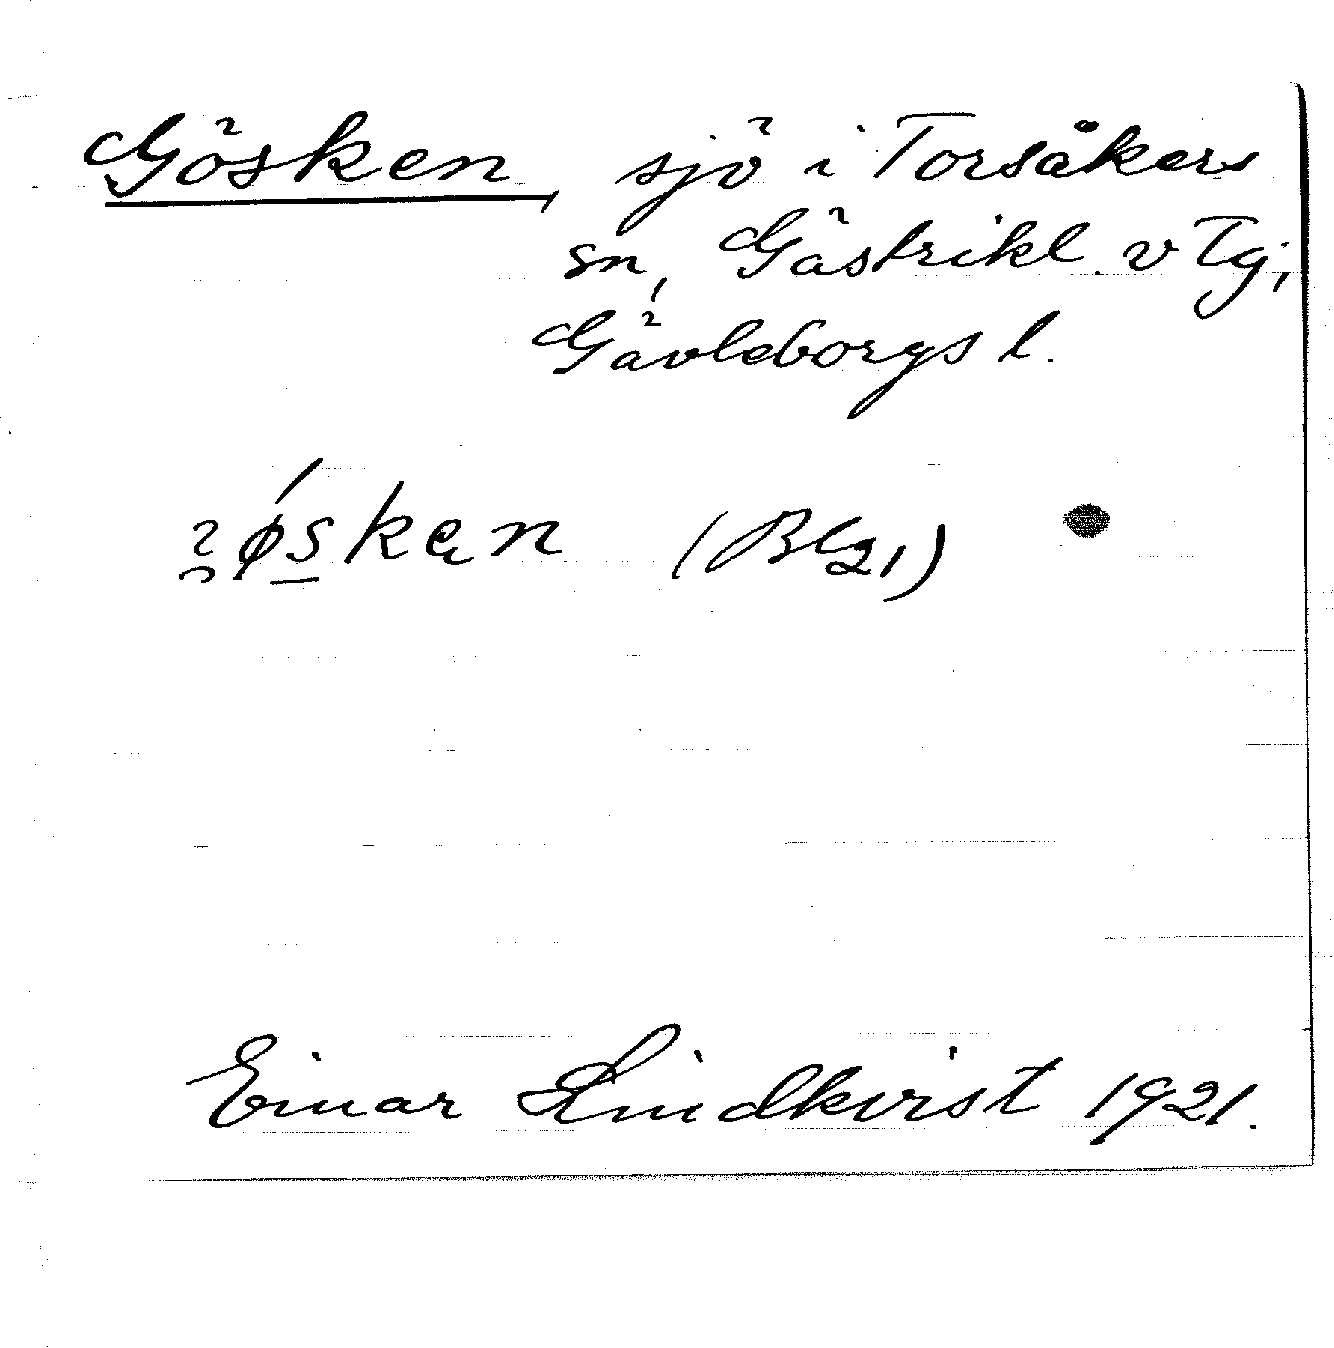 Gösken, sjö i Torsåkers
sn, Gästrikl. v Tg,
Gävleborgs l.
øskęn (Bl21)
Einar Lindkvist 1921.